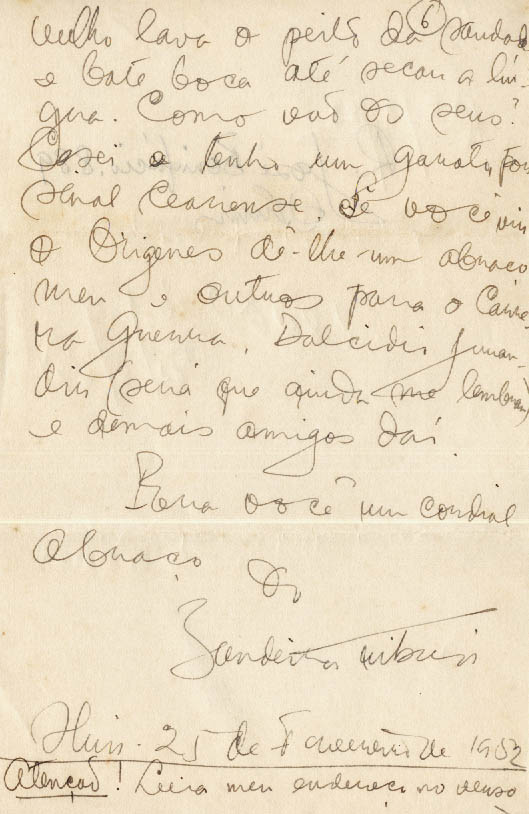 6
velho lava o peito da saudade
e bate boca até secar a lín-
gua. Como vão os seus?
Casei e tenho um garoto
cearense. Se você vir
o Orígenes dê-lhe um abraço
meu e outros para o
Guerra, Dalcidio Juran-
dir (será que ainda me lembram)
e demais amigos daí.
Para você um cordial
abraço
do
Bandeira Tribuzi
25 de Fevereiro de 1952
Atenção! Leia meu endereço no verso